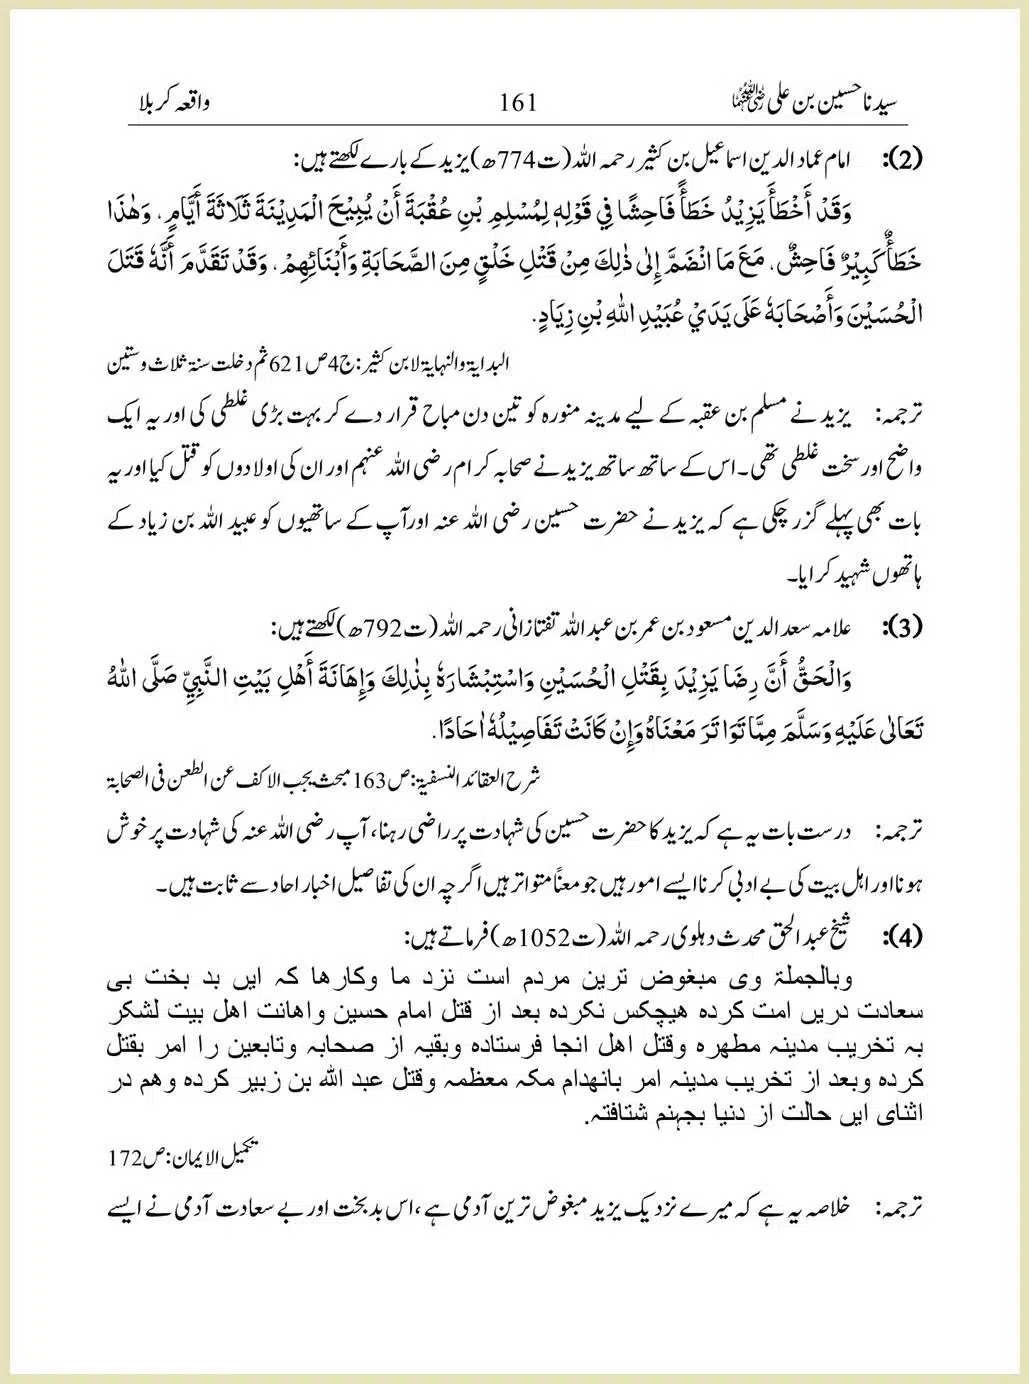 سیدنا حسین بن علی رضی اللہ عنہما 161 واقعہ کربلا
(2): امام عماد الدین اسماعیل بن کثیر رحمہ اللہ (ت774ھ) یزید کے بارے لکھتے ہیں:
وَقَدْ أَخْطَأَ یَزِیْدُ خَطَأً فَاحِشًا فِي قَوْلِهٖ لِمُسْلِمِ بْنِ عُقْبَةَ أَنْ یُبِیْحَ الْمَدِیْنَةَ ثَلَاثَةَ أَیَّامٍ، وَهٰذَا
خَطَأٌ کَبِیْرٌ فَاحِشٌ، مَعَ مَا انْضَمَّ إِلٰی ذٰلِكَ مِنْ قَتْلِ خَلْقٍ مِنَ الصَّحَابَةِ وَأَبْنَائِهِمْ، وَقَدْ تَقَدَّمَ أَنَّهٗ قَتَلَ
الْحُسَیْنَ وَأَصْحَابَهٗ عَلَی یَدَيْ عُبَیْدِ اللّٰهِ بْنِ زِیَادٍ.
البدایۃ والنہایۃ لابن کثیر: ج4ص621 ثم دخلت سنۃ ثلاث وستین
ترجمہ: یزید نے مسلم بن عقبہ کے لیے مدینہ منورہ کو تین دن مباح قرار دے کر بہت بڑی غلطی کی اور یہ ایک
واضح اور سخت غلطی تھی۔ اس کے ساتھ ساتھ یزید نے صحابہ کرام رضی اللہ عنہم اور ان کی اولادوں کو قتل کیا اور یہ
بات بھی پہلے گزر چکی ہے کہ یزید نے حضرت حسین رضی اللہ عنہ اور آپ کے ساتھیوں کو عبید اللہ بن زیاد کے
ہاتھوں شہید کرایا۔
(3): علامہ سعد الدین مسعود بن عمر بن عبد اللہ تفتازانی رحمہ اللہ (ت792ھ) لکھتے ہیں:
وَالْحَقُّ أَنَّ رِضَا یَزِیْدَ بِقَتْلِ الْحُسَیْنِ وَاسْتِبْشَارَهٗ بِذٰلِكَ وَإِهَانَةَ أَهْلِ بَیْتِ النَّبِيِّ صَلَّی اللّٰهُ
تَعَالٰی عَلَیْهِ وَسَلَّمَ مِمَّا تَوَاتَرَ مَعْنَاهُ وَإِنْ کَانَتْ تَفَاصِیْلُهٗ اٰحَادًا.
شرح العقائد النسفیۃ: ص163 مبحث یجب الاکف عن الطعن فی الصحابۃ
ترجمہ: درست بات یہ ہے کہ یزید کا حضرت حسین کی شہادت پر راضی رہنا، آپ رضی اللہ عنہ کی شہادت پر خوش
ہونا اور اہل بیت کی بے ادبی کرنا ایسے امور ہیں جو معناً متواتر ہیں اگرچہ ان کی تفاصیل اخبار احاد سے ثابت ہیں۔
(4): شیخ عبد الحق محدث دہلوی رحمہ اللہ (ت1052ھ) فرماتے ہیں:
وبالجملۃ وی مبغوض ترین مردم است نزد ما وکارھا کہ ایں بد بخت بی
سعادت دریں امت کردہ ھیچکس نکردہ بعد از قتل امام حسین واھانت اھل بیت لشکر
بہ تخریب مدینہ مطھرہ وقتل اھل انجا فرستادہ وبقیہ از صحابہ وتابعین را امر بقتل
کردہ وبعد از تخریب مدینہ امر بانھدام مکہ معظمہ وقتل عبد اللہ بن زبیر کردہ وھم در
اثنای ایں حالت از دنیا بجہنم شتافتہ.
تکمیل الایمان: ص172
ترجمہ: خلاصہ یہ ہے کہ میرے نزدیک یزید مبغوض ترین آدمی ہے، اس بدبخت اور بے سعادت آدمی نے ایسے